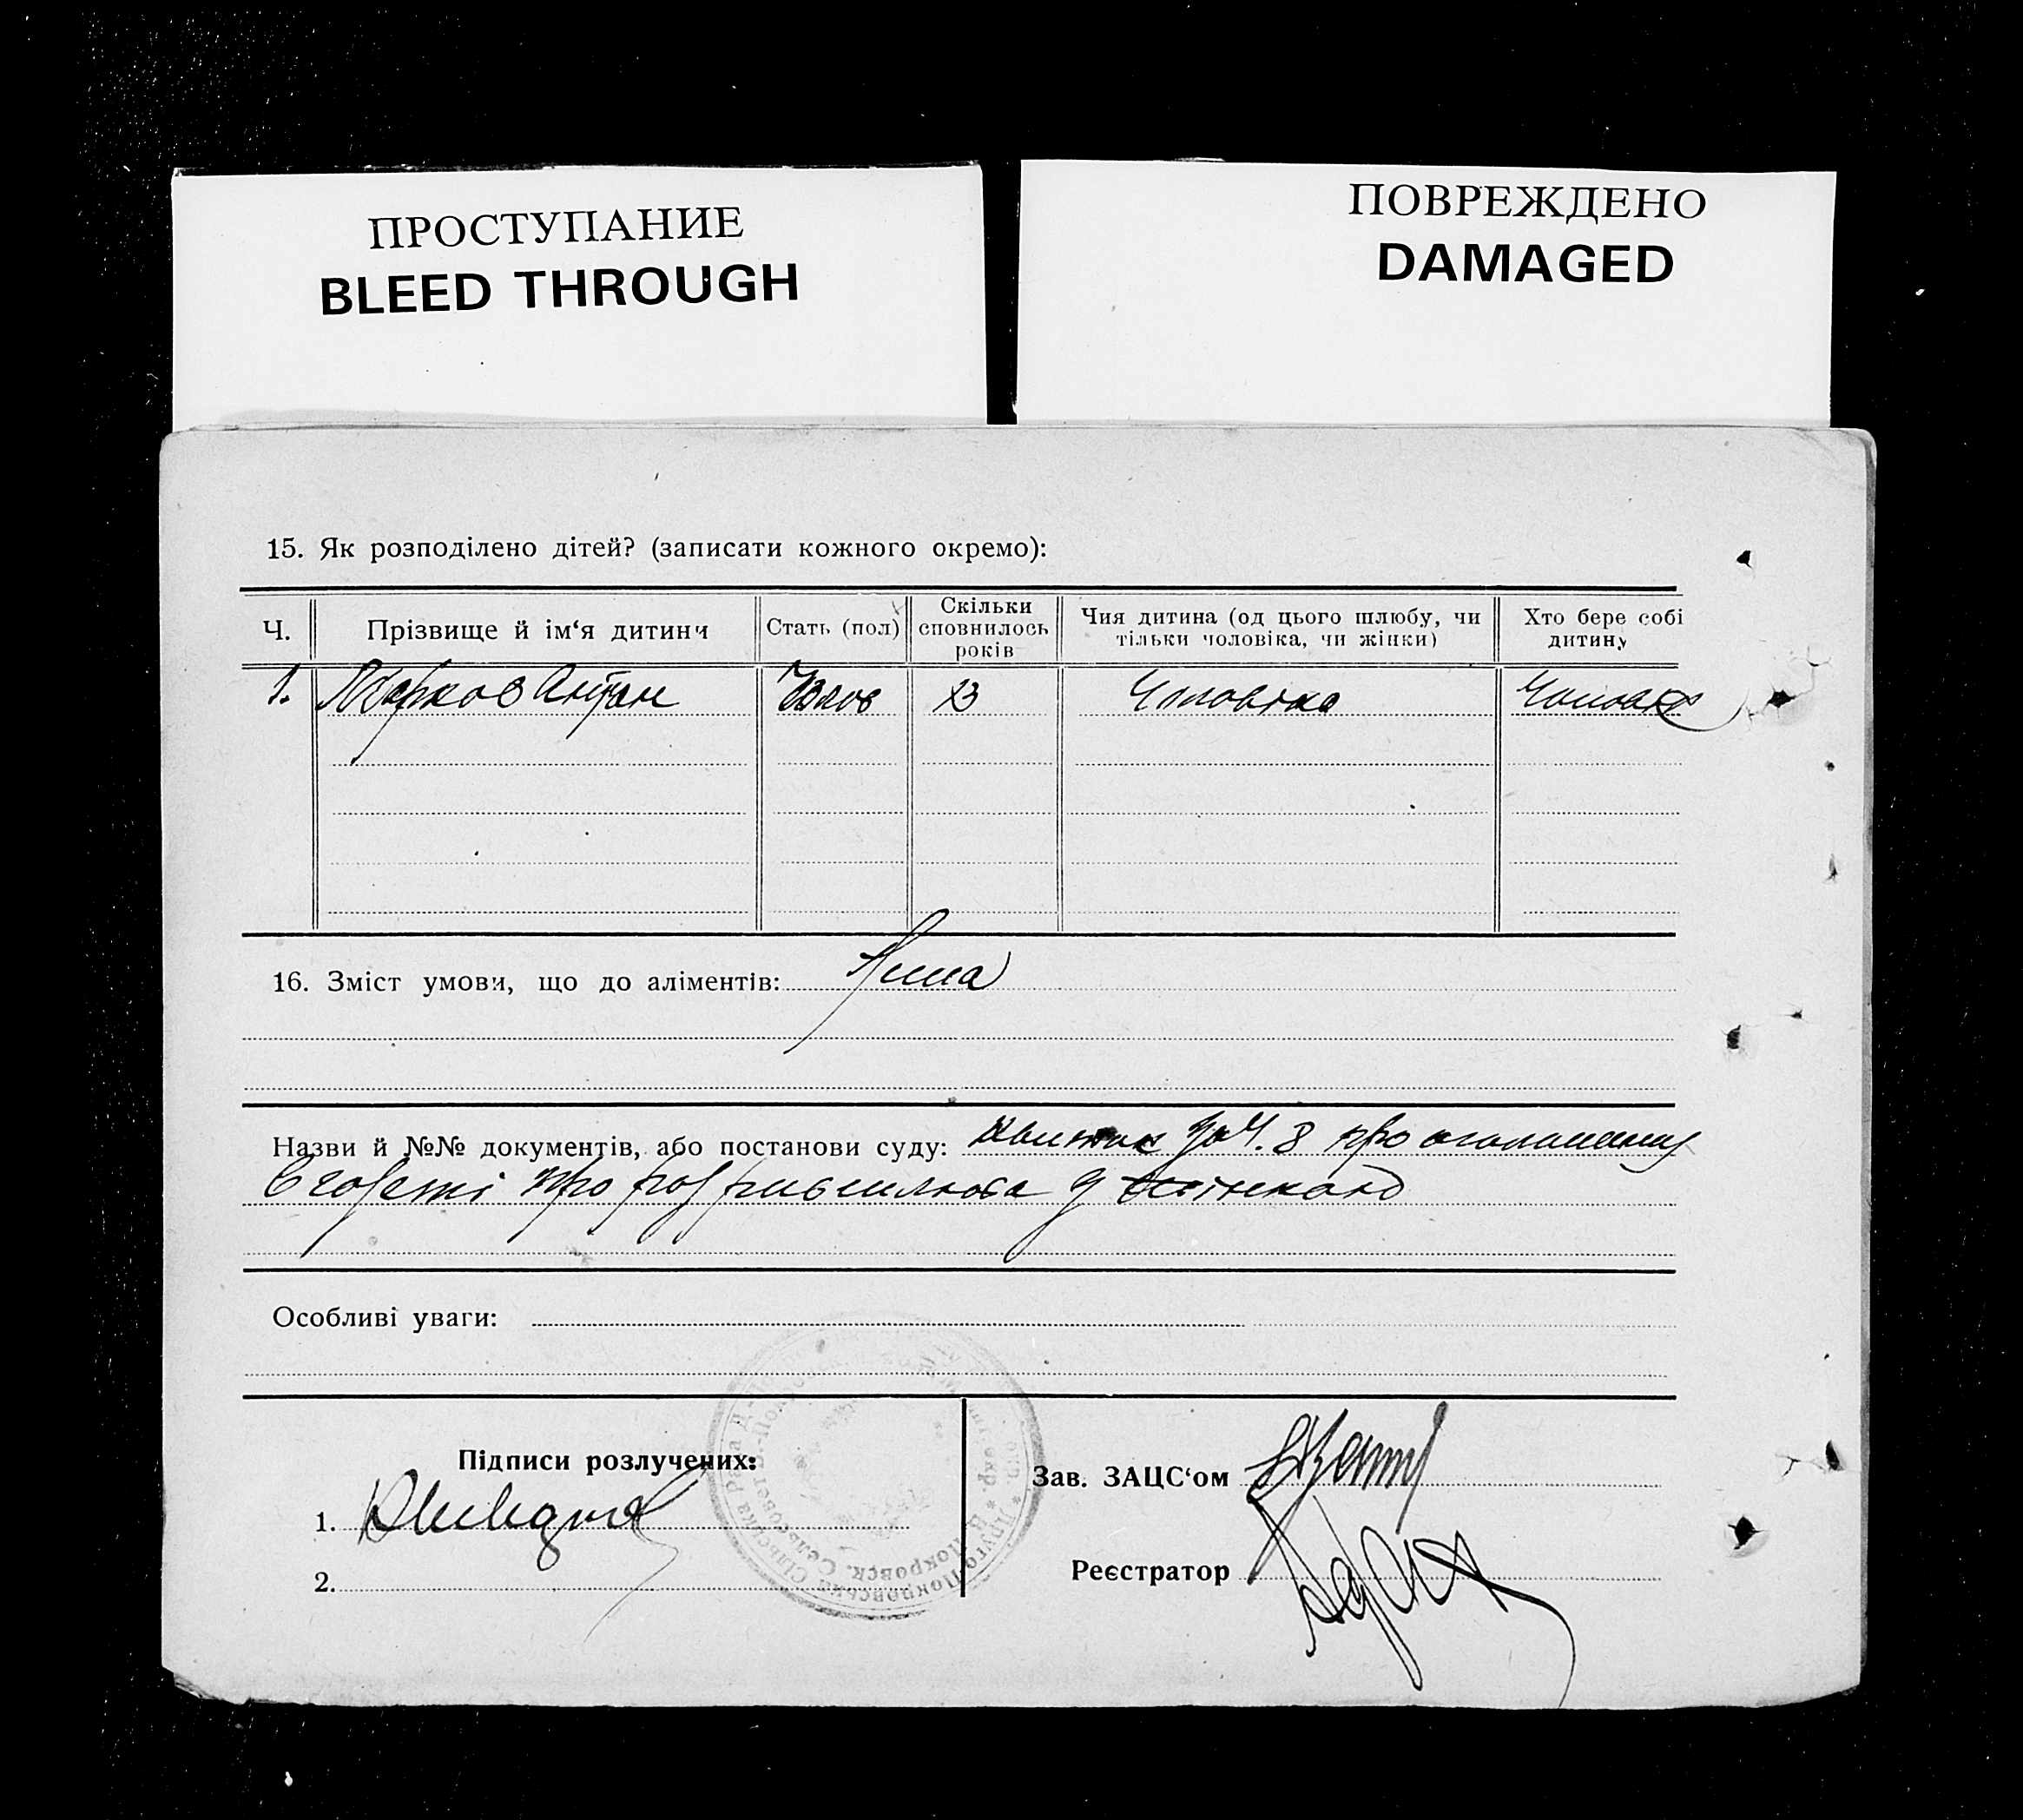 ПРОСТУПАНИЕ
BLEED THROUGH
ПОВРЕЖДЕНО
DAMAGED
15. Як розподілено дітей? (записати кожного окремо):
Ч. Прізвище й ім‘я дитини Стать (пол) Скільки сповнилось років Чия дитина (од цього шлюбу, чи тільки чоловіка, чи жінки) Хто бере собі дитину
1. Марков Антон 13 Чоловіка Чоловік
16. Зміст умови, що до аліментів: Нима
Назви й №№ документів, або постанови суду: Квиток за Ч. 8 про оголошення
в газеті про розрив шлюба з жінкою
Особливі уваги:
Підписи розлучених:
1.
2.
Зав. ЗАЦС‘ом
Реєстратор